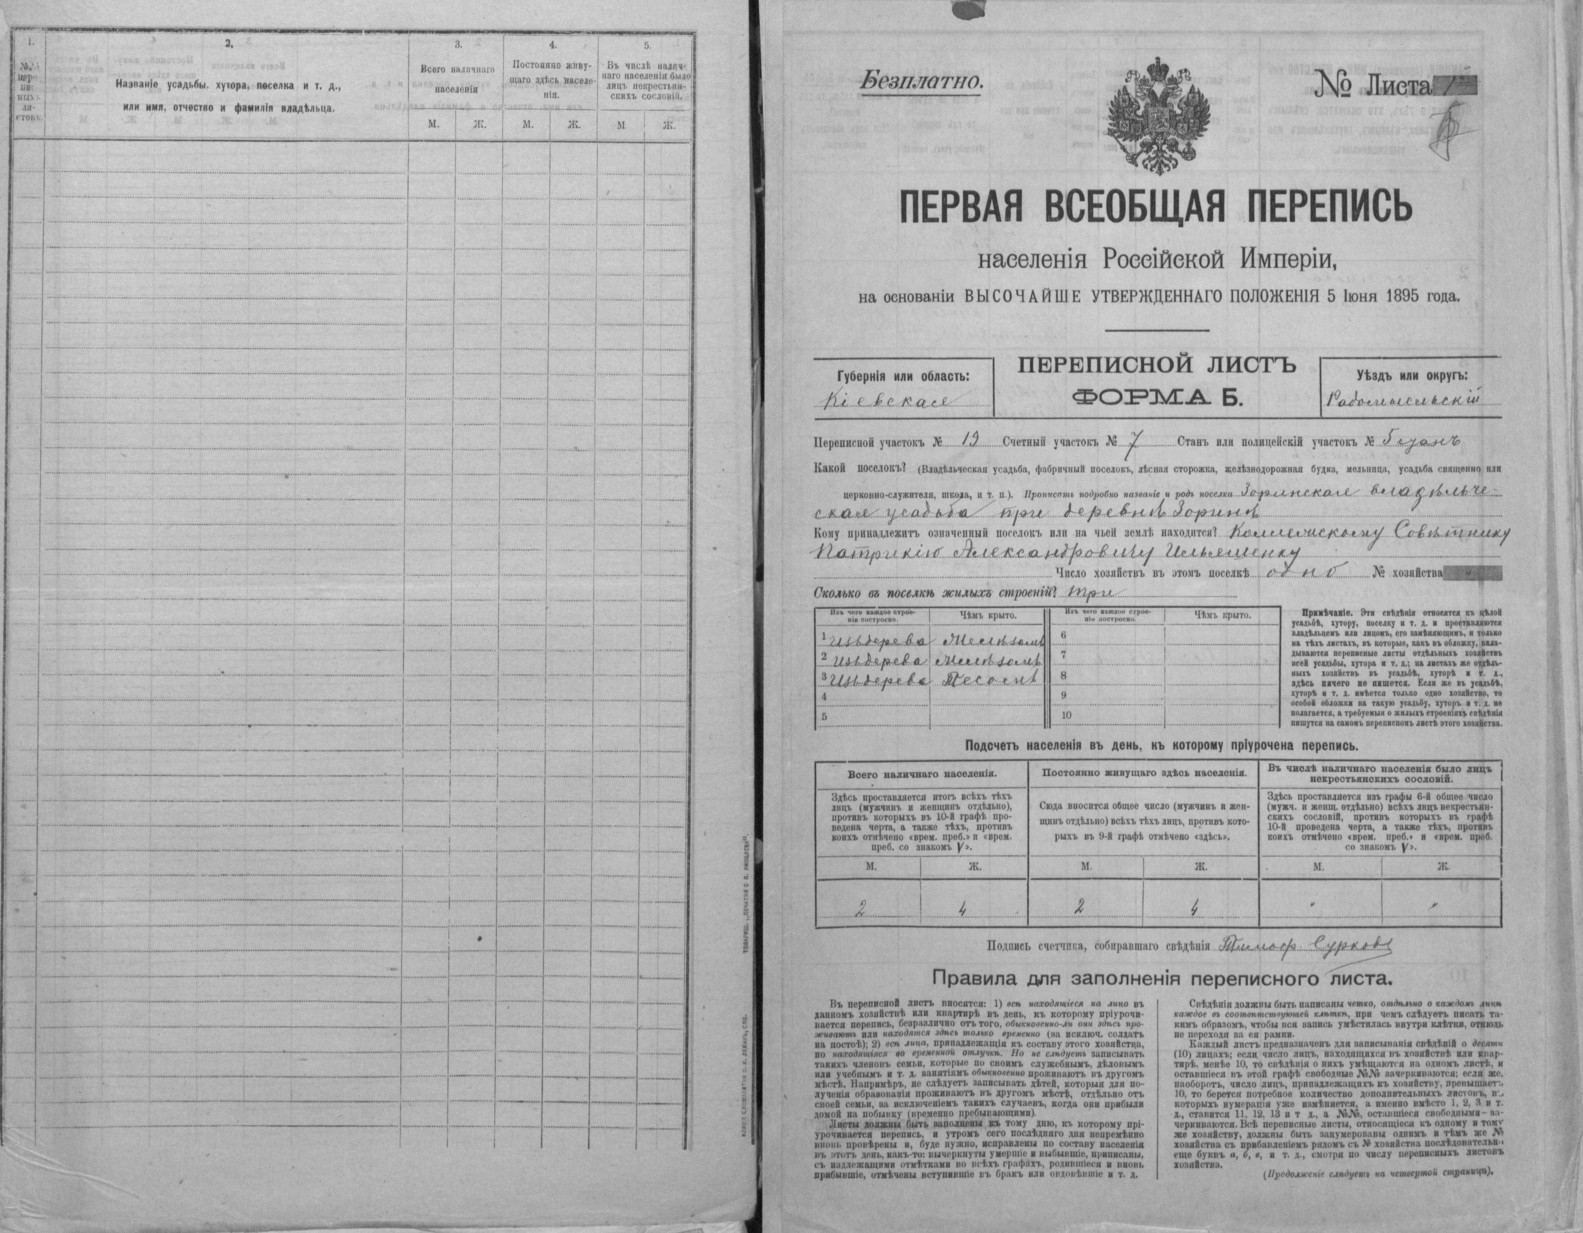 1.
2.
3.
4.
5.
Названіе усадьбы, хутора, поселка и т. д.,
или имя, отчество и фамилія владѣльца.
Всего наличнаго
населенія
Постоянно живу-
щаго здѣсь населе-
нія.
Въ числѣ налич-
наго населенія было
лицъ некрестьян-
скихъ сословій.
М. Ж. М. Ж. М Ж.
Безплатно.
№ Листа
ПЕРВАЯ ВСЕОБЩАЯ ПЕРЕПИСЬ
населенія Россійской Имперіи,
на основаніи ВЫСОЧАЙШЕ УТВЕРЖДЕННАГО ПОЛОЖЕНІЯ 5 Іюня 1895 года.
Губернія или область:
Кіевская
ПЕРЕПИСНОЙ ЛИСТЪ
ФОРМА Б.
Уѣздъ или округъ:
Радомысльскій
Переписной участокъ № 19 Счетный участокъ № 7 Станъ или полицейскій участокъ №
Какой поселокъ? (Владѣльческая усадьба, фабричный поселокъ, лѣсная сторожка, желѣзнодорожная будка, мельница, усадьба священно или
церковно-служителя, школа, и т. п.). Прописать подробно названіе и родъ поселка Зоринская владѣльче-
ская усадьба при деревнѣ Зоринѣ
Кому принадлежитъ означенный поселокъ или на чьей землѣ находится? Коллежскому Совѣтнику
Патрикію Александровичу Ильяшенку
Число хозяйствъ въ этомъ поселкѣ одно № хозяйства
Сколько въ поселкѣ жилыхъ строеній? три
Изъ чего каждое строе-
ніе построено.
Чѣмъ крыто.
Изъ чего каждое строе-
ніе построено.
Чѣмъ крыто.
1 Изъ дерева Желѣзомъ
2 Изъ дерева Желѣзомъ
3 Изъ дерева Тесомъ
4
5
6
7
8
9
10
Примѣчаніе. Эти свѣдѣнія относятся къ цѣлой
усадьбѣ, хутору, поселку и т. д. и проставляются
владѣльцемъ или лицомъ, его замѣняющимъ, и только
на тѣхъ листахъ, въ которые, какъ въ обложку, вкла-
дываются переписные листы отдѣльныхъ хозяйствъ
всей усадьбы, хутора и т. д.; на листахъ же отдѣль-
ныхъ хозяйствъ въ усадьбѣ, хуторѣ и т. д.,
здѣсь ничего не пишется. Если же въ усадьбѣ,
хуторѣ и т. д. имѣется только одно хозяйство, то
особой обложки на такую усадьбу, хуторъ и т. д. не
полагается, а требуемыя о жилыхъ строеніяхъ свѣдѣнія
пишутся на самомъ переписномъ листѣ этого хозяйства.
Подсчетъ населенія въ день, къ которому пріурочена перепись.
Всего наличнаго населенія.
Здѣсь проставляется итогъ всѣхъ тѣхъ
лицъ (мужчинъ и женщинъ отдѣльно),
противъ которыхъ въ 10-й графѣ про-
ведена черта, а также тѣхъ, противъ
коихъ отмѣчено «врем. преб.» и «врем.
преб. со знакомъ V».
Постоянно живущаго здѣсь населенія.
Сюда вносится общее число (мужчинъ и жен-
щинъ отдѣльно) всѣхъ тѣхъ лицъ, противъ кото-
рыхъ въ 9-й графѣ отмѣчено «здѣсь».
Въ числѣ наличнаго населенія было лицъ
некрестьянскихъ сословій.
Здѣсь проставляется изъ графы 6-й общее число
(мужч. и женщ. отдѣльно) всѣхъ лицъ некрестьян-
скихъ сословій, противъ которыхъ въ графѣ
10-й проведена черта, а также тѣхъ, противъ
коихъ отмѣчено «врем. преб.» и «врем. преб.
со знакомъ V».
М. Ж. М. Ж. М. Ж.
2 4 2 4 " "
Подпись счетчика, собиравшаго свѣдѣнія Тимоф. Сурковъ
Правила для заполненія переписного листа.
Въ переписной листъ вносятся: 1) всѣ находящіеся на лицо въ
данномъ хозяйствѣ или квартирѣ въ день, къ которому пріурочи-
вается перепись, безразлично отъ того, обыкновенно-ли они здѣсь про-
живаютъ или находятся здѣсь только временно (за исключ. солдатъ
на постоѣ); 2) всѣ лица, принадлежащія къ составу этого хозяйства,
но находящіяся во временной отлучкѣ. Но не слѣдуетъ записывать
такихъ членовъ семьи, которые по своимъ служебнымъ, дѣловымъ
или учебнымъ и т. д. занятіямъ обыкновенно проживаютъ въ другомъ
мѣстѣ. Напримѣръ, не слѣдуетъ записывать дѣтей, которыя для по-
лученія образованія проживаютъ въ другомъ мѣстѣ, отдѣльно отъ
своей семьи, за исключеніемъ такихъ случаевъ, когда они прибыли
домой на побывку (временно пребывающими).
Листы должны быть заполнены къ тому дню, къ которому прі-
урочивается перепись, и утромъ сего послѣдняго дня непремѣнно
вновь провѣрены и, буде нужно, исправлены по составу населенія
въ этотъ день, какъ-то: вычеркнуты умершіе и выбывшіе, приписаны,
съ надлежащими отмѣтками во всѣхъ графахъ, родившіеся и вновь
прибывшіе, отмѣчены вступившіе въ бракъ или овдовѣвшіе и т. д.
Свѣдѣнія должны быть написаны четко, отдѣльно о каждомъ лицѣ
каждое въ соотвѣтствующей клѣткѣ, при чемъ слѣдуетъ писать та-
кимъ образомъ, чтобы вся запись умѣстилась внутри клѣтки, отнюдь
не переходя за ея рамки.
Каждый листъ предназначенъ для записыванія свѣдѣній о десяти
(10) лицахъ; если число лицъ, находящихся въ хозяйствѣ или квар-
тирѣ, менѣе 10, то свѣдѣнія о нихъ умѣщаются на одномъ листѣ, и
оставшіеся въ этой графѣ свободные №№ зачеркиваются; если же,
наоборотъ, число лицъ, принадлежащихъ къ хозяйству, превышаетъ
10, то берется потребное количество дополнительныхъ листовъ, въ
которыхъ нумерація уже измѣняется, а именно вмѣсто 1, 2, 3 и т.
д., ставится 11, 12, 13 и т д., а №№, оставшіеся свободными—за-
черкиваются. Всѣ переписные листы, относящіеся къ одному и тому
же хозяйству, должны быть занумерованы однимъ и тѣмъ же №
хозяйства съ прибавленіемъ рядомъ съ № хозяйства послѣдовательно
еще буквъ а, б, в, и т. д., смотря по числу переписныхъ листовъ
хозяйства.
(Продолженіе слѣдуетъ на четвертой страницѣ).